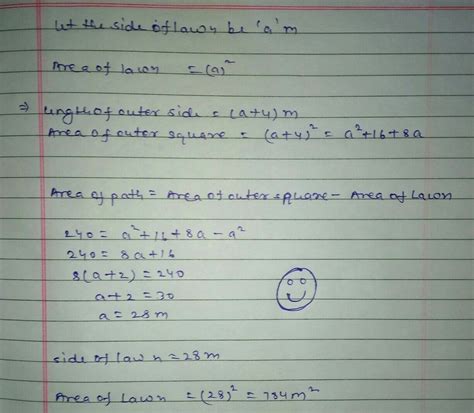 let the side of lawn be 'a' m
Area of lawn = (a)²
⇒ length of outer side = (a+4) m
Area of outer square = (a+4)² = a²+16+8a
Area of path = Area of outer square - Area of Lawn
240 = a²+16+8a-a²
240 = 8a+16
8(a+2) = 240
a+2 = 30
a = 28m
side of lawn = 28m
Area of Lawn = (28)² = 784m²